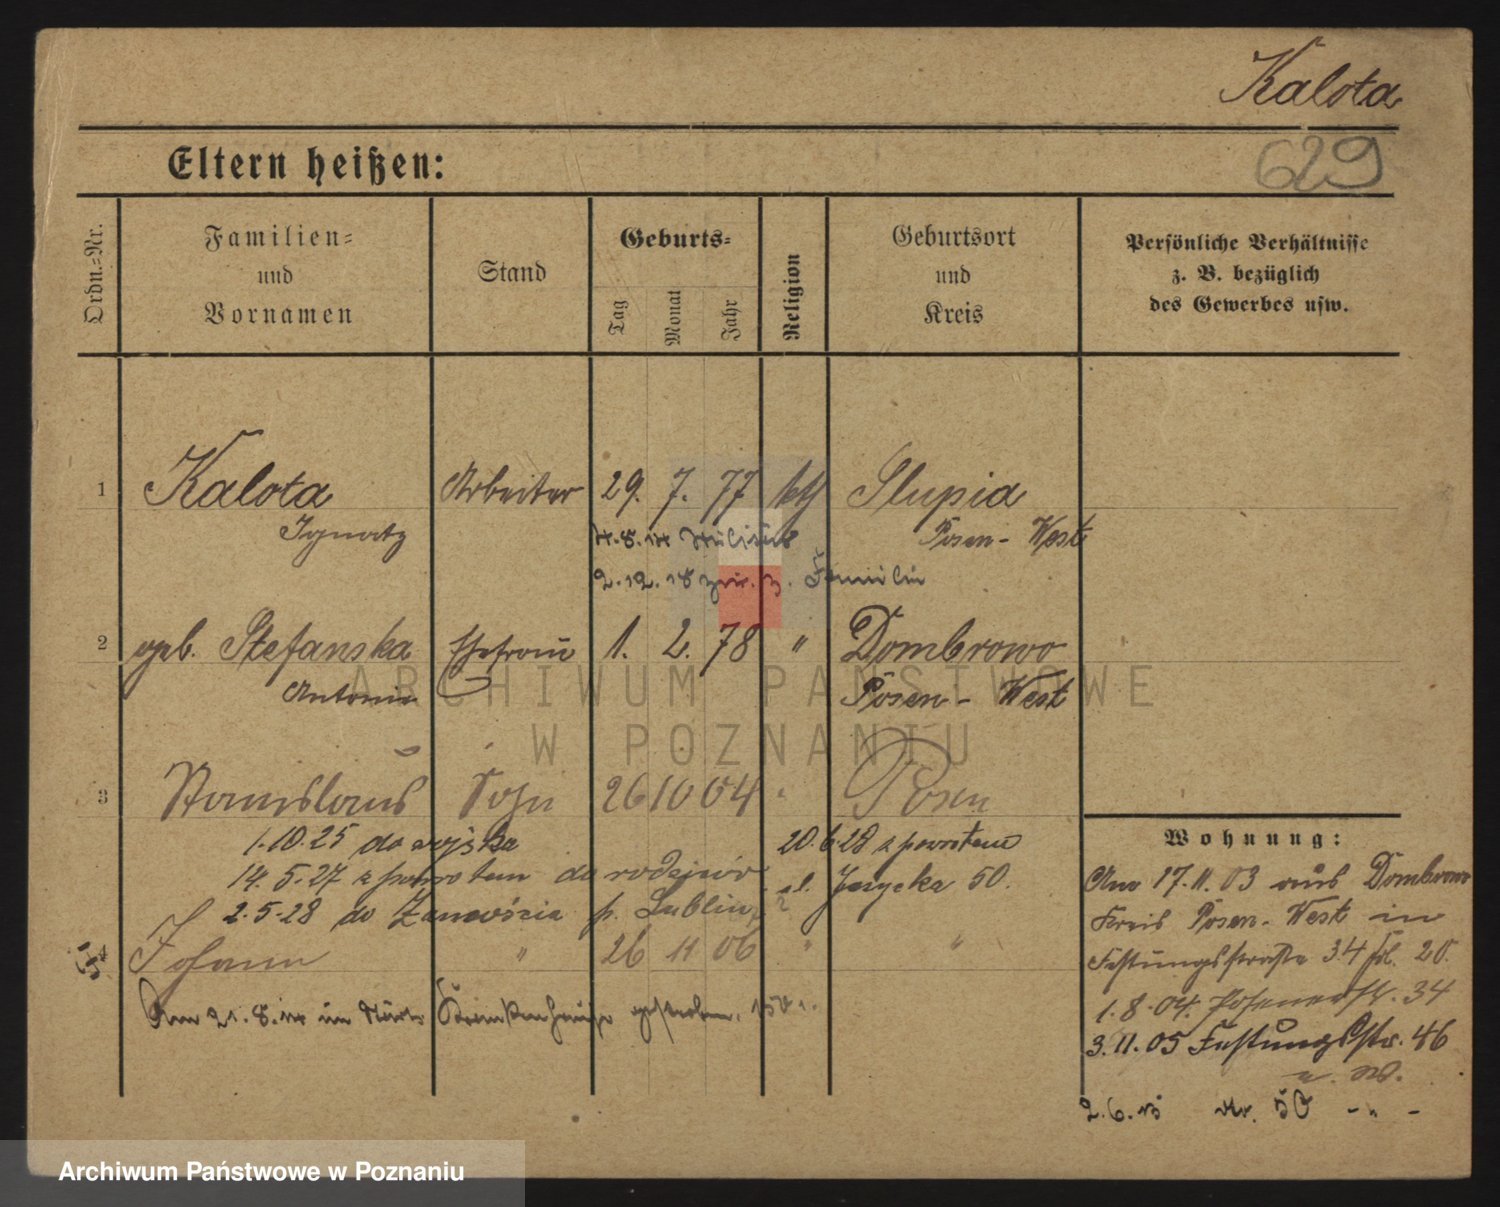 Kalota
629
Eltern heißen:
Ordn.-Nr.
Familien-
und
Vornamen
Stand
Geburts-
Tag
Monat
Jahr
Religion
Geburtsort
und
Kreis
Persönliche Verhältnisse
z. B. bezüglich
des Gewerbes usw.
1 Kalota Arbeiter 29. 7. 77 kth Slupia
Ignatz Posen-West
4.8.14
2.12.18 z. Familie
2 geb. Stefanska Ehefrau 1. 2. 78 " Dombrowo
Antonie Posen-West
ARCHIWUM PAŃSTWOWE
W POZNANIU
3 Stanislaus Sohn 26 10 04 " Posen
1.10.25 do wojska 20.6.28 z powrotem
14.5.27 z powrotem do rodziców ul. Jasycka 50.
2.5.28 do p. Lublin
4 Johann " 26 11 06 " "
Am 21.8.14 im Krankenhause gestorben.
Wohnung:
Am 17.11.03 aus Dombrowo
Kreis Posen-West in
Festungsstraße 34 fol. 20.
1.8.04. Posenerstr. 34
3.11.05 Festungsstr. 46
2.6.13 Nr. 50 - " -
Archiwum Państwowe w Poznaniu